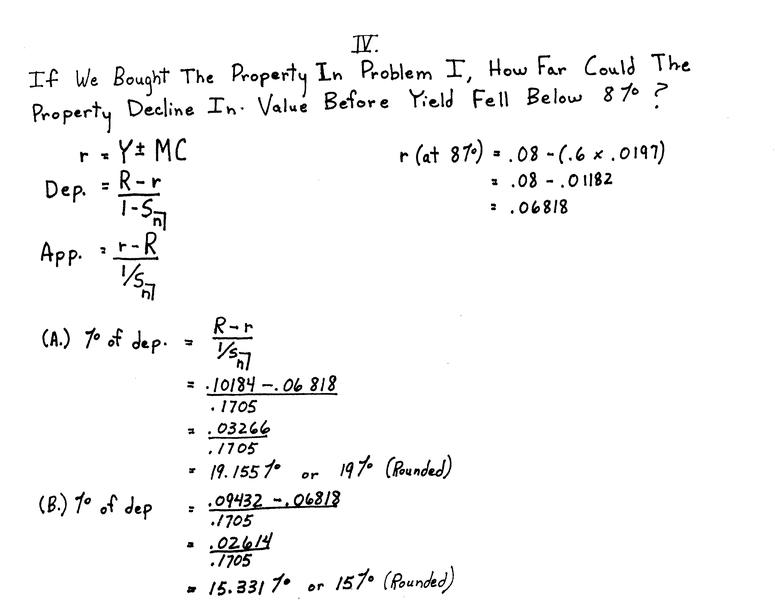 IV.
If We Bought The Property In Problem I, How Far Could The
Property Decline In. Value Before Yield Fell Below 8% ?
r = Y ± MC
r (at 8%) = .08 - (.6 x .0197)
= .08 - .01182
= .06818
Dep. = R - r / 1 - S n⌉
App. = r - R / 1/S n⌉
(A.) % of dep. = R - r / 1/S n⌉
= .10184 - .06818 / .1705
= .03266 / .1705
= 19.155% or 19% (Rounded)
(B.) % of dep = .09432 - .06818 / .1705
= .02614 / .1705
= 15.331% or 15% (Rounded)